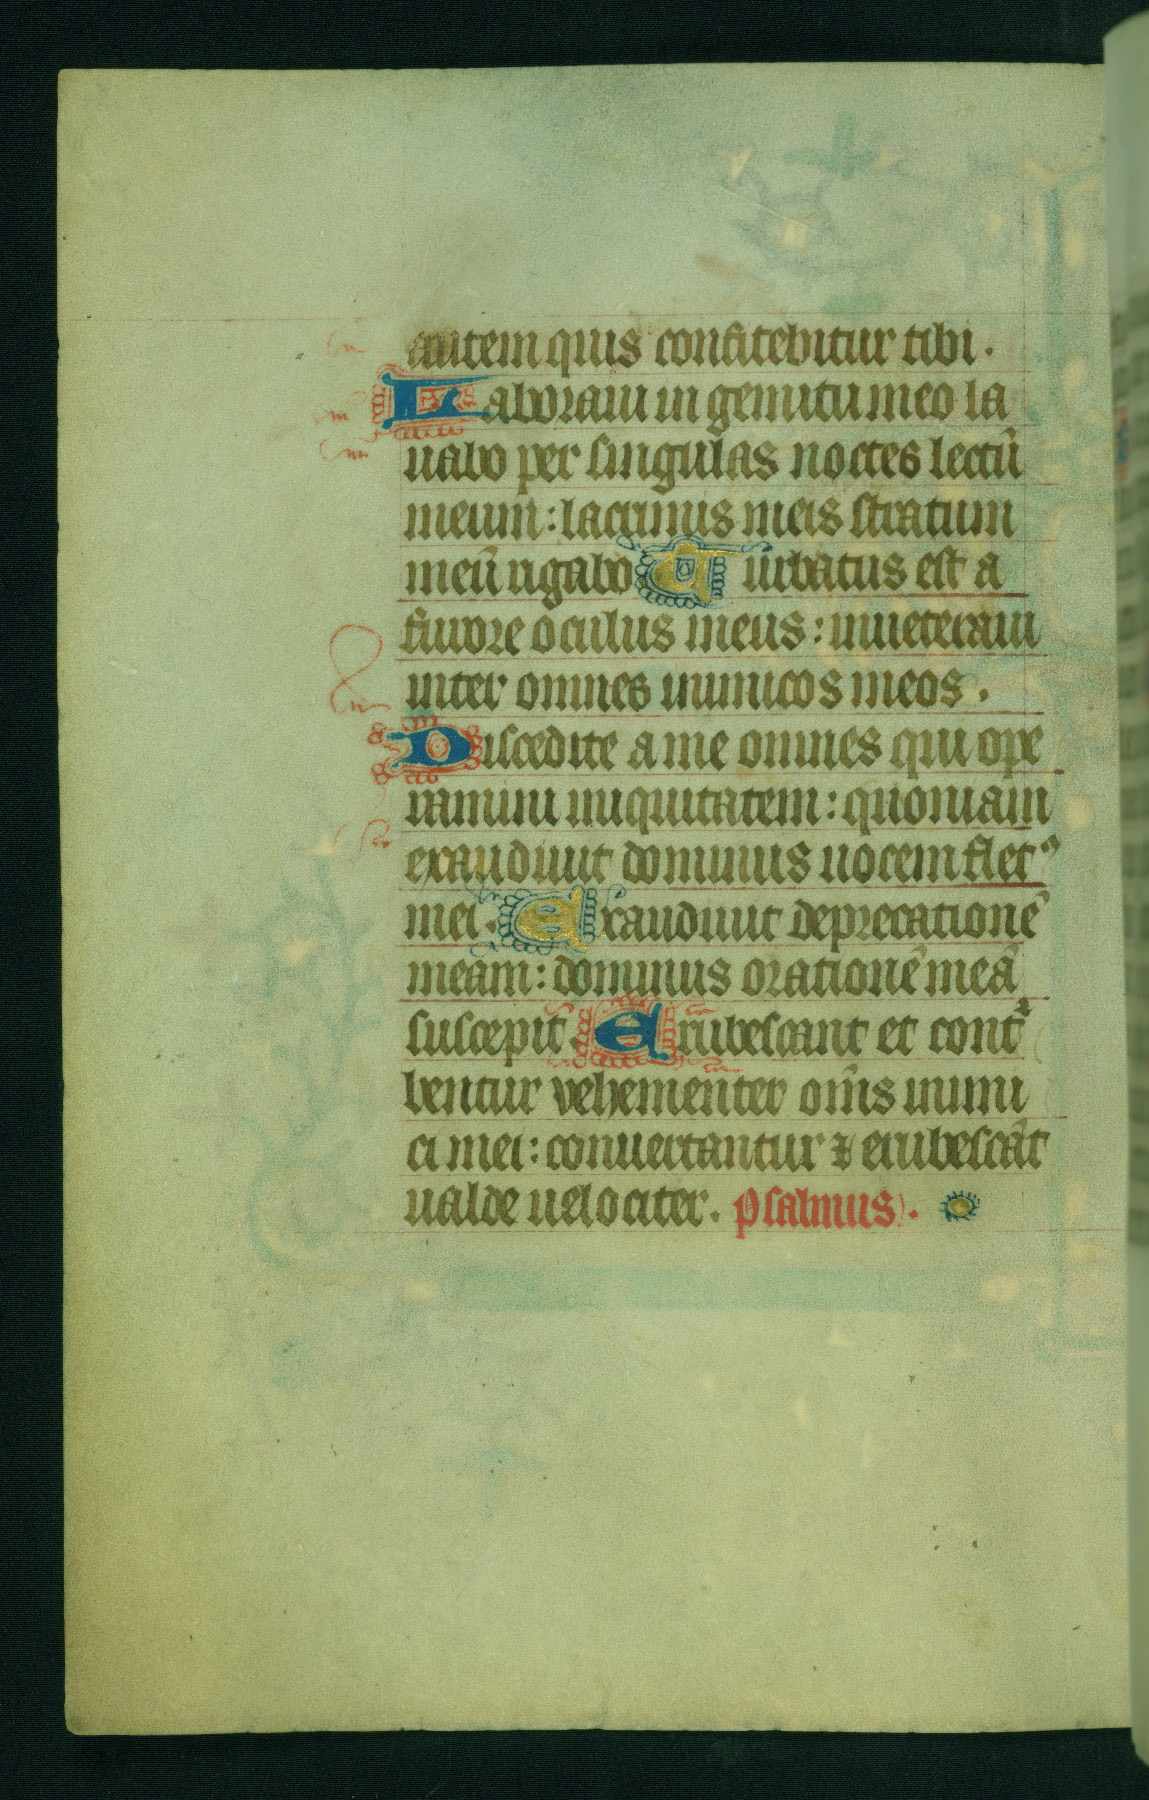 autem quis confitebitur tibi.
Laboraui in gemitu meo la
uabo per singulas noctes lectū
meum: lacrimis meis stratum
meū rigabo Turbatus est a
furore oculus meus: inueteraui
inter omnes inimicos meos.
Discedite a me omnes qui ope
ramini iniquitatem: quoniam
exaudiuit dominus uocem flet9
mei. Exaudiuit deprecationē
meam: dominus orationē meā
suscepit. Erubescant et cont
bentur vehementer om̄s inimi
ci mei: conuertantur ⁊ erubescāt
ualde uelociter. psalmus.